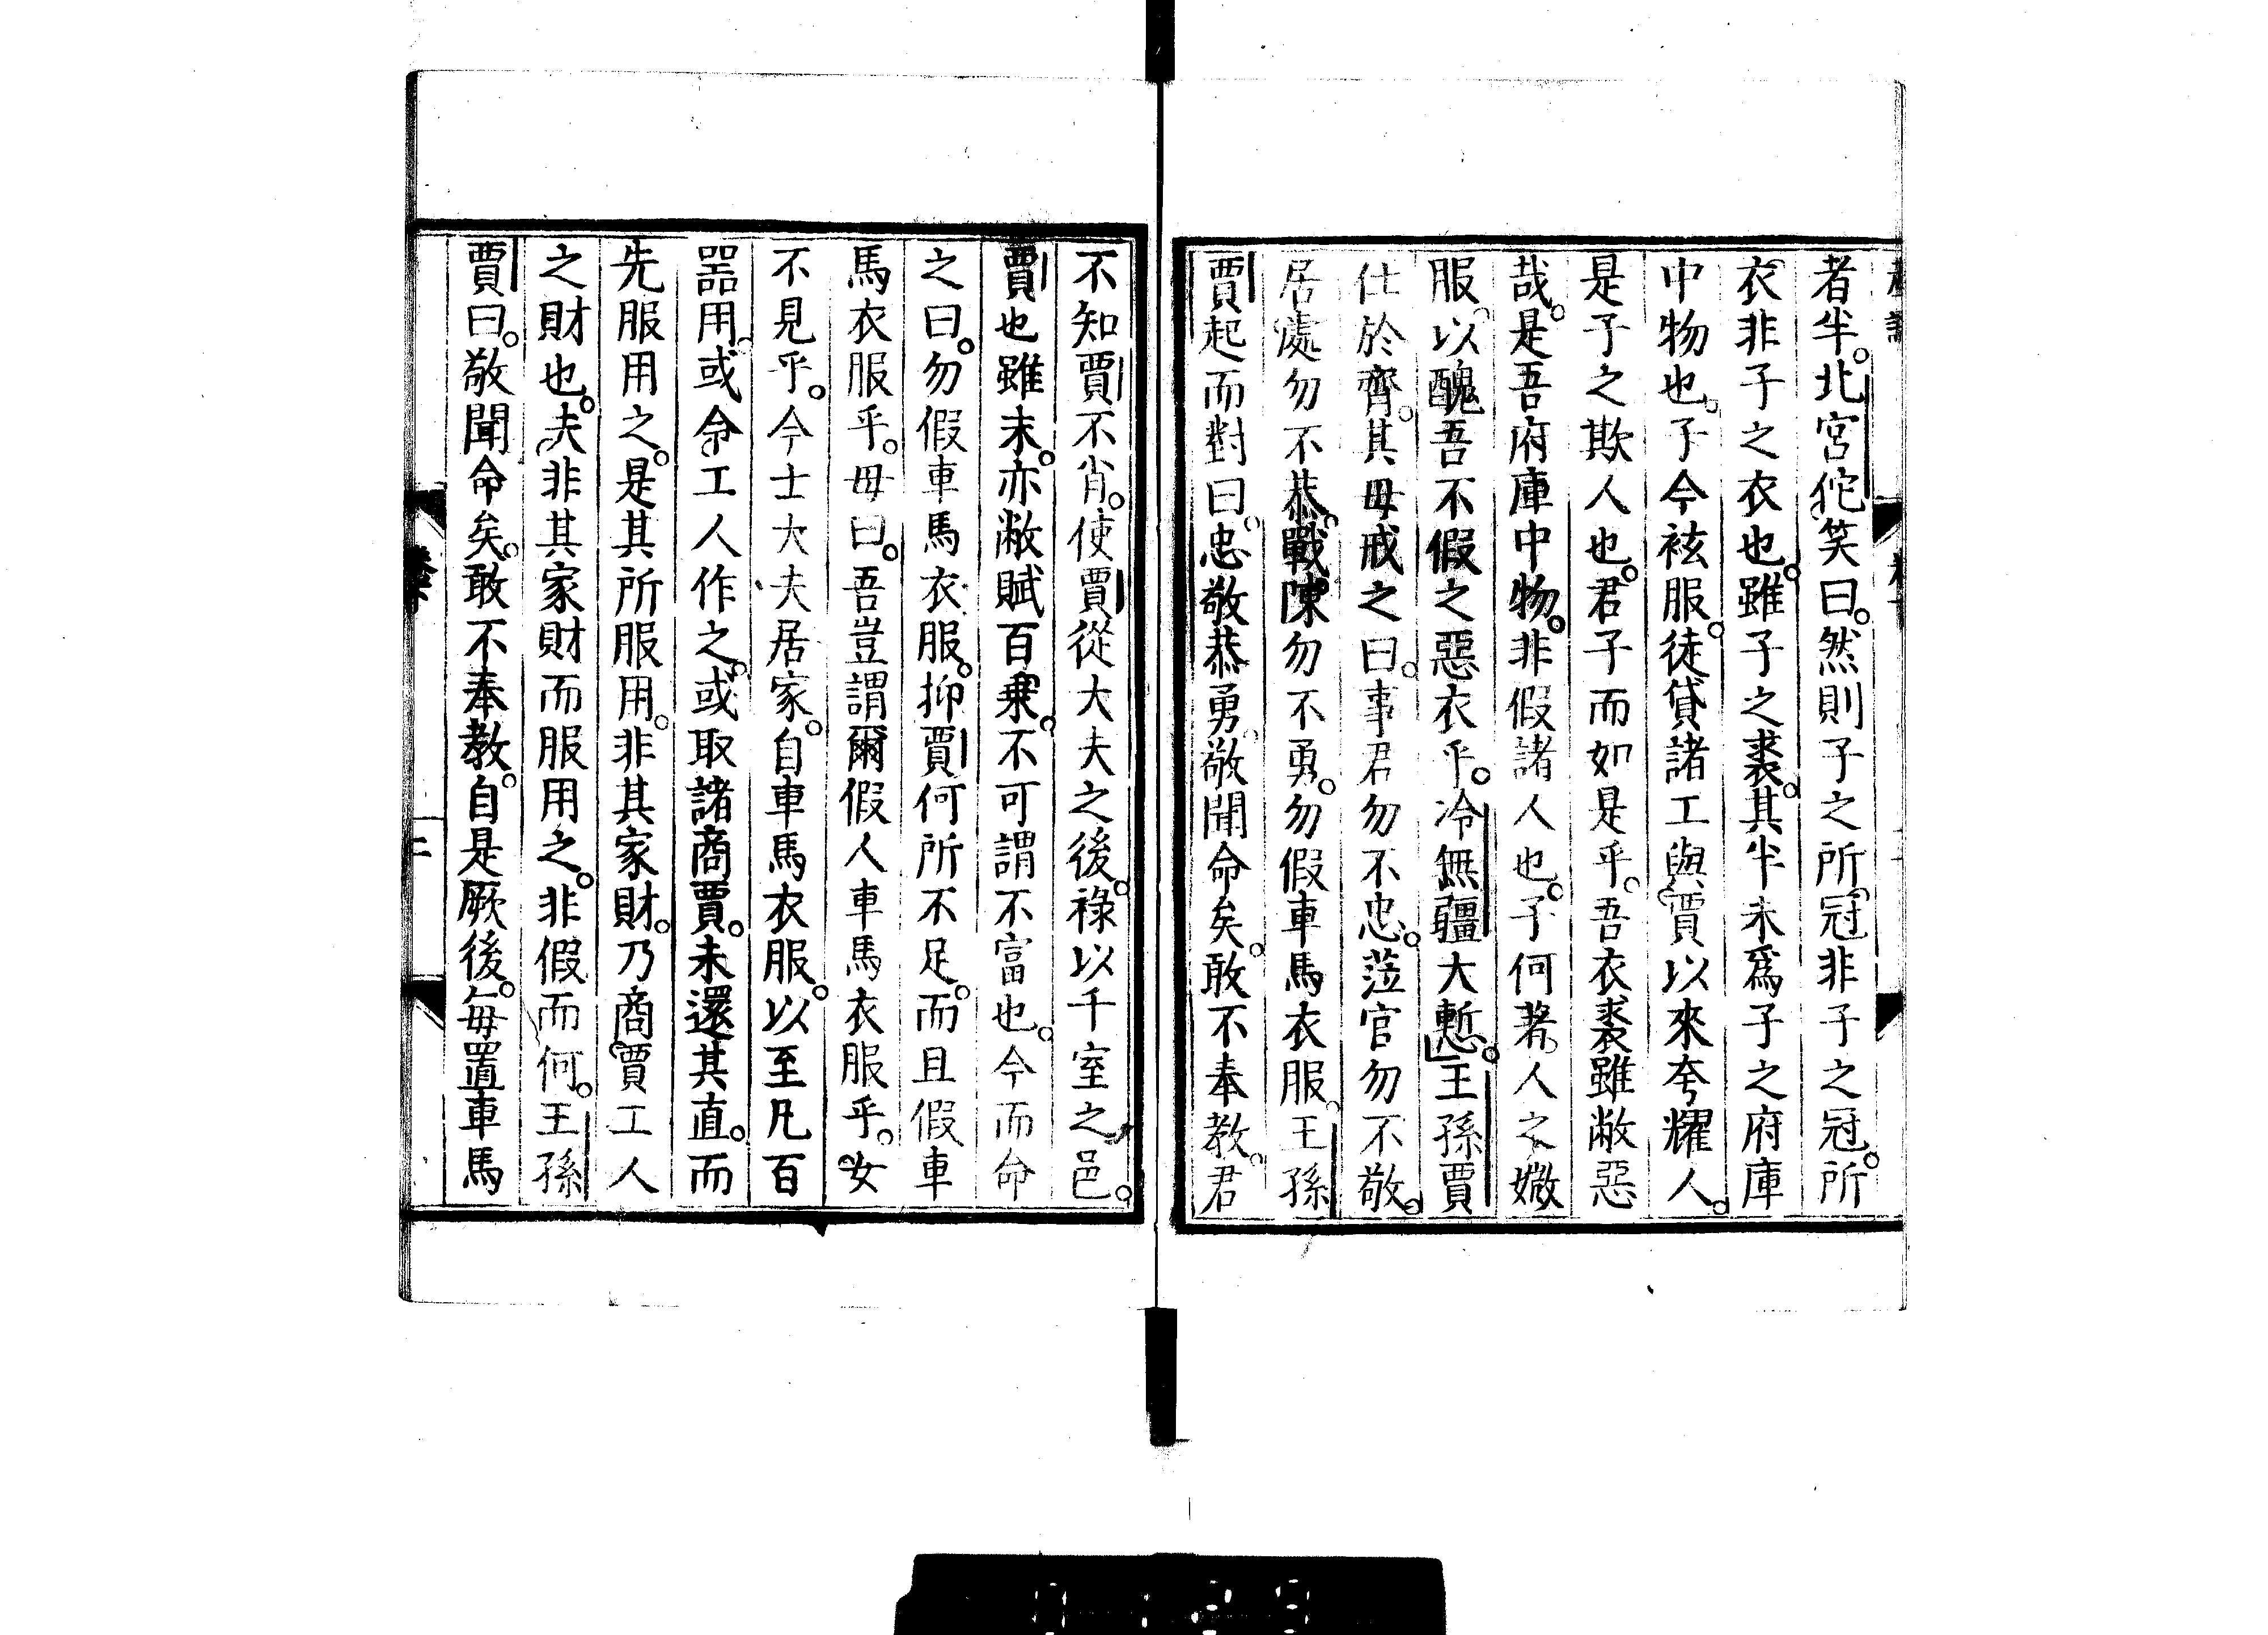 者半。北宮佗笑曰。然則子之所冠非子之冠。所
衣非子之衣也。雖子之裘。其半未爲子之府庫
中物也。子今袨服。徒貸諸工與賈以來夸耀人。
是子之欺人也。君子而如是乎。吾衣裘雖敝惡
哉。是吾府庫中物。非假諸人也。子何著人之媺
服。以醜吾不假之惡衣乎。冷無疆大慙。王孫賈
仕於齊。其母戒之曰。事君勿不忠。蒞官勿不敬。
居處勿不恭。戰陳勿不勇。勿假車馬衣服。王孫
賈起而對曰。忠敬恭勇。敬聞命矣。敢不奉教。君
不知賈不肖。使賈從大夫之後。祿以千室之邑。
賈也雖末。亦敝賦百乘。不可謂不富也。今而命
之曰。勿假車馬衣服。抑賈何所不足。而且假車
馬衣服乎。母曰。吾豈謂爾假人車馬衣服乎。女
不見乎。今士大夫居家。自車馬衣服。以至凡百
器用。或令工人作之。或取諸商賈。未還其直。而
先服用之。是其所服用。非其家財。乃商賈工人
之財也。夫非其家財而服用之。非假而何。王孫
賈曰。敬聞命矣。敢不奉教。自是厥後。每置車馬
二